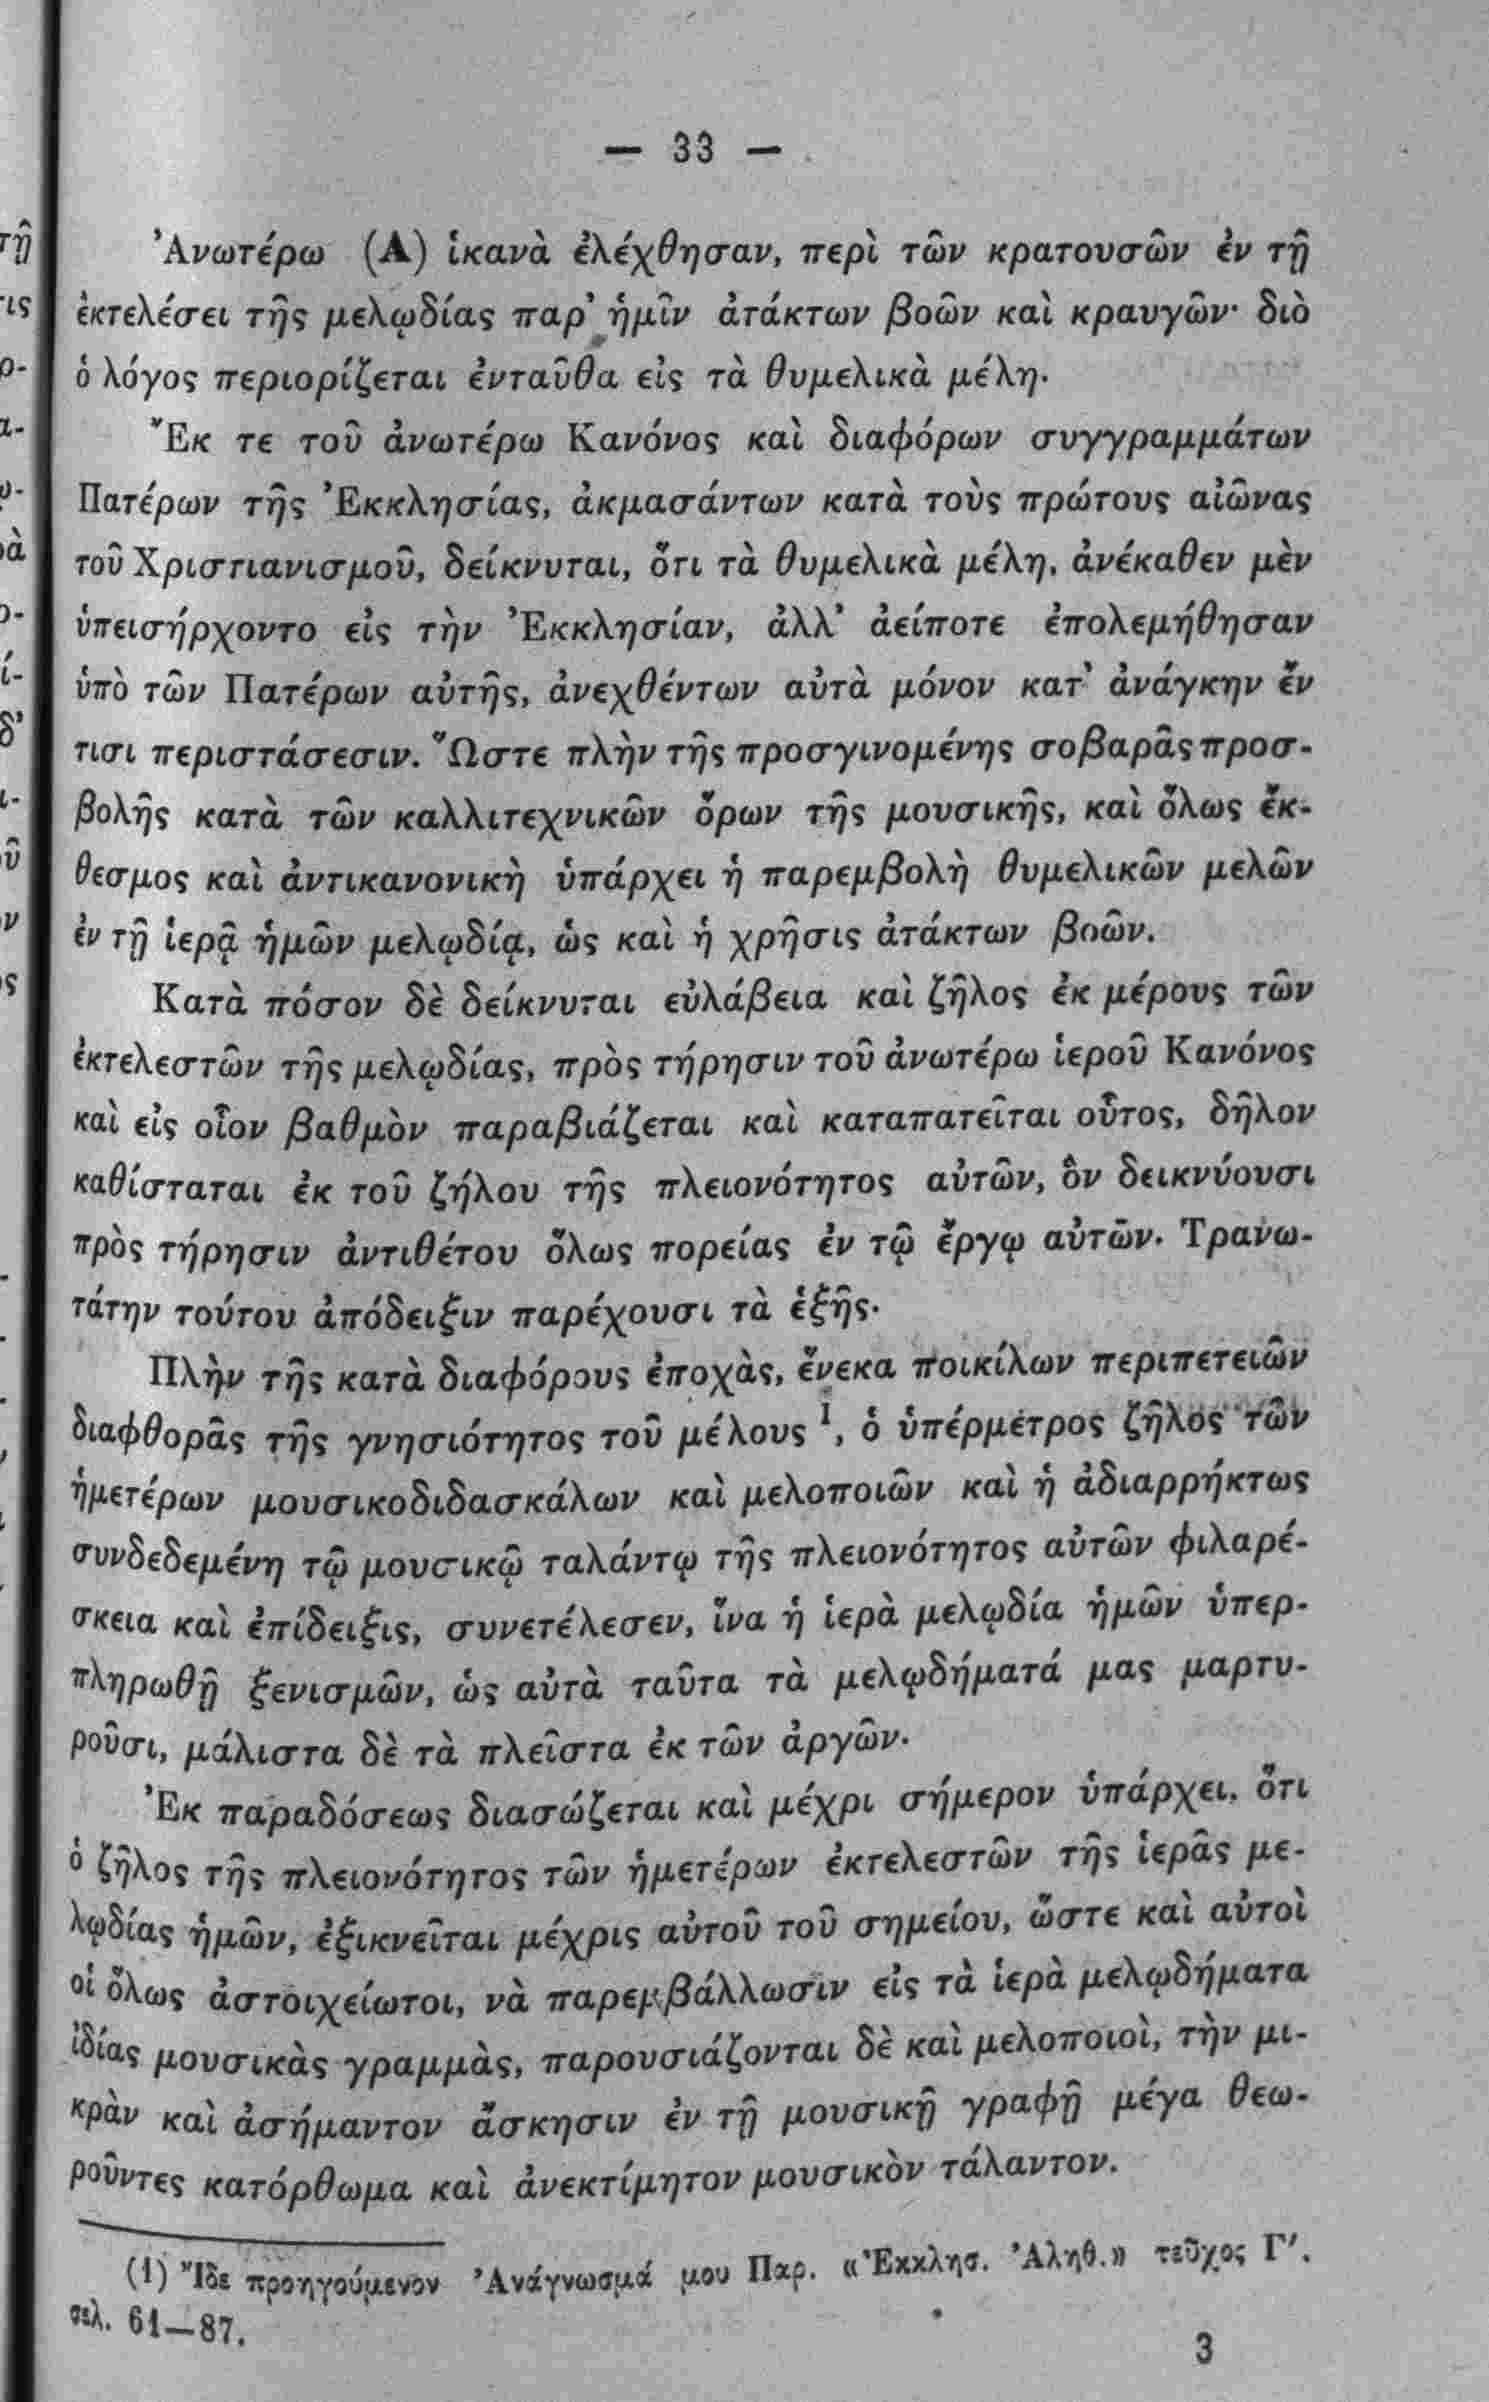 — 33 —
Ἀνωτέρω (Α) ἱκανὰ ἐλέχθησαν, περὶ τῶν κρατουσῶν ἐν τῇ
ἐκτελέσει τῆς μελῳδίας παρ' ἡμῖν ἀτάκτων βοῶν καὶ κραυγῶν· διὸ
ὁ λόγος περιορίζεται ἐνταῦθα εἰς τὰ θυμελικὰ μέλη.
Ἔκ τε τοῦ ἀνωτέρω Κανόνος καὶ διαφόρων συγγραμμάτων
Πατέρων τῆς Ἐκκλησίας, ἀκμασάντων κατὰ τοὺς πρώτους αἰῶνας
τοῦ Χριστιανισμοῦ, δείκνυται, ὅτι τὰ θυμελικὰ μέλη, ἀνέκαθεν μὲν
ὑπεισήρχοντο εἰς τὴν Ἐκκλησίαν, ἀλλ' ἀείποτε ἐπολεμήθησαν
ὑπὸ τῶν Πατέρων αὐτῆς, ἀνεχθέντων αὐτὰ μόνον κατ' ἀνάγκην ἔν
τισι περιστάσεσιν. Ὥστε πλὴν τῆς προσγινομένης σοβαρᾶς προσ-
βολῆς κατὰ τῶν καλλιτεχνικῶν ὅρων τῆς μουσικῆς, καὶ ὅλως ἔκ-
θεσμος καὶ ἀντικανονικὴ ὑπάρχει ἡ παρεμβολὴ θυμελικῶν μελῶν
ἐν τῇ ἱερᾷ ἡμῶν μελῳδίᾳ, ὡς καὶ ἡ χρῆσις ἀτάκτων βοῶν.
Κατὰ πόσον δὲ δείκνυται εὐλάβεια καὶ ζῆλος ἐκ μέρους τῶν
ἐκτελεστῶν τῆς μελῳδίας, πρὸς τήρησιν τοῦ ἀνωτέρω ἱεροῦ Κανόνος
καὶ εἰς οἷον βαθμὸν παραβιάζεται καὶ καταπατεῖται οὗτος, δῆλον
καθίσταται ἐκ τοῦ ζήλου τῆς πλειονότητος αὐτῶν, ὃν δεικνύουσι
πρὸς τήρησιν ἀντιθέτου ὅλως πορείας ἐν τῷ ἔργῳ αὐτῶν. Τρανω-
τάτην τούτου ἀπόδειξιν παρέχουσι τὰ ἑξῆς.
Πλὴν τῆς κατὰ διαφόρους ἐποχὰς, ἕνεκα ποικίλων περιπετειῶν
διαφθορᾶς τῆς γνησιότητος τοῦ μέλους ¹, ὁ ὑπέρμετρος ζῆλος τῶν
ἡμετέρων μουσικοδιδασκάλων καὶ μελοποιῶν καὶ ἡ ἀδιαρρήκτως
συνδεδεμένη τῷ μουσικῷ ταλάντῳ τῆς πλειονότητος αὐτῶν φιλαρέ-
σκεια καὶ ἐπίδειξις, συνετέλεσεν, ἵνα ἡ ἱερὰ μελῳδία ἡμῶν ὑπερ-
πληρωθῇ ξενισμῶν, ὡς αὐτὰ ταῦτα τὰ μελῳδήματά μας μαρτυ-
ροῦσι, μάλιστα δὲ τὰ πλεῖστα ἐκ τῶν ἀργῶν.
Ἐκ παραδόσεως διασώζεται καὶ μέχρι σήμερον ὑπάρχει, ὅτι
ὁ ζῆλος τῆς πλειονότητος τῶν ἡμετέρων ἐκτελεστῶν τῆς ἱερᾶς με-
λῳδίας ἡμῶν, ἐξικνεῖται μέχρις αὐτοῦ τοῦ σημείου, ὥστε καὶ αὐτοὶ
οἱ ὅλως ἀστοιχείωτοι, νὰ παρεμβάλλωσιν εἰς τὰ ἱερὰ μελῳδήματα
ἰδίας μουσικὰς γραμμὰς, παρουσιάζονται δὲ καὶ μελοποιοὶ, τὴν μι-
κρὰν καὶ ἀσήμαντον ἄσκησιν ἐν τῇ μουσικῇ γραφῇ μέγα θεω-
ροῦντες κατόρθωμα καὶ ἀνεκτίμητον μουσικὸν τάλαντον.
(1) Ἴδε προηγούμενον Ἀνάγνωσμά μου Παρ. «Ἐκκλησ. Ἀληθ.» τεῦχος Γ'.
σελ. 61—87.
3